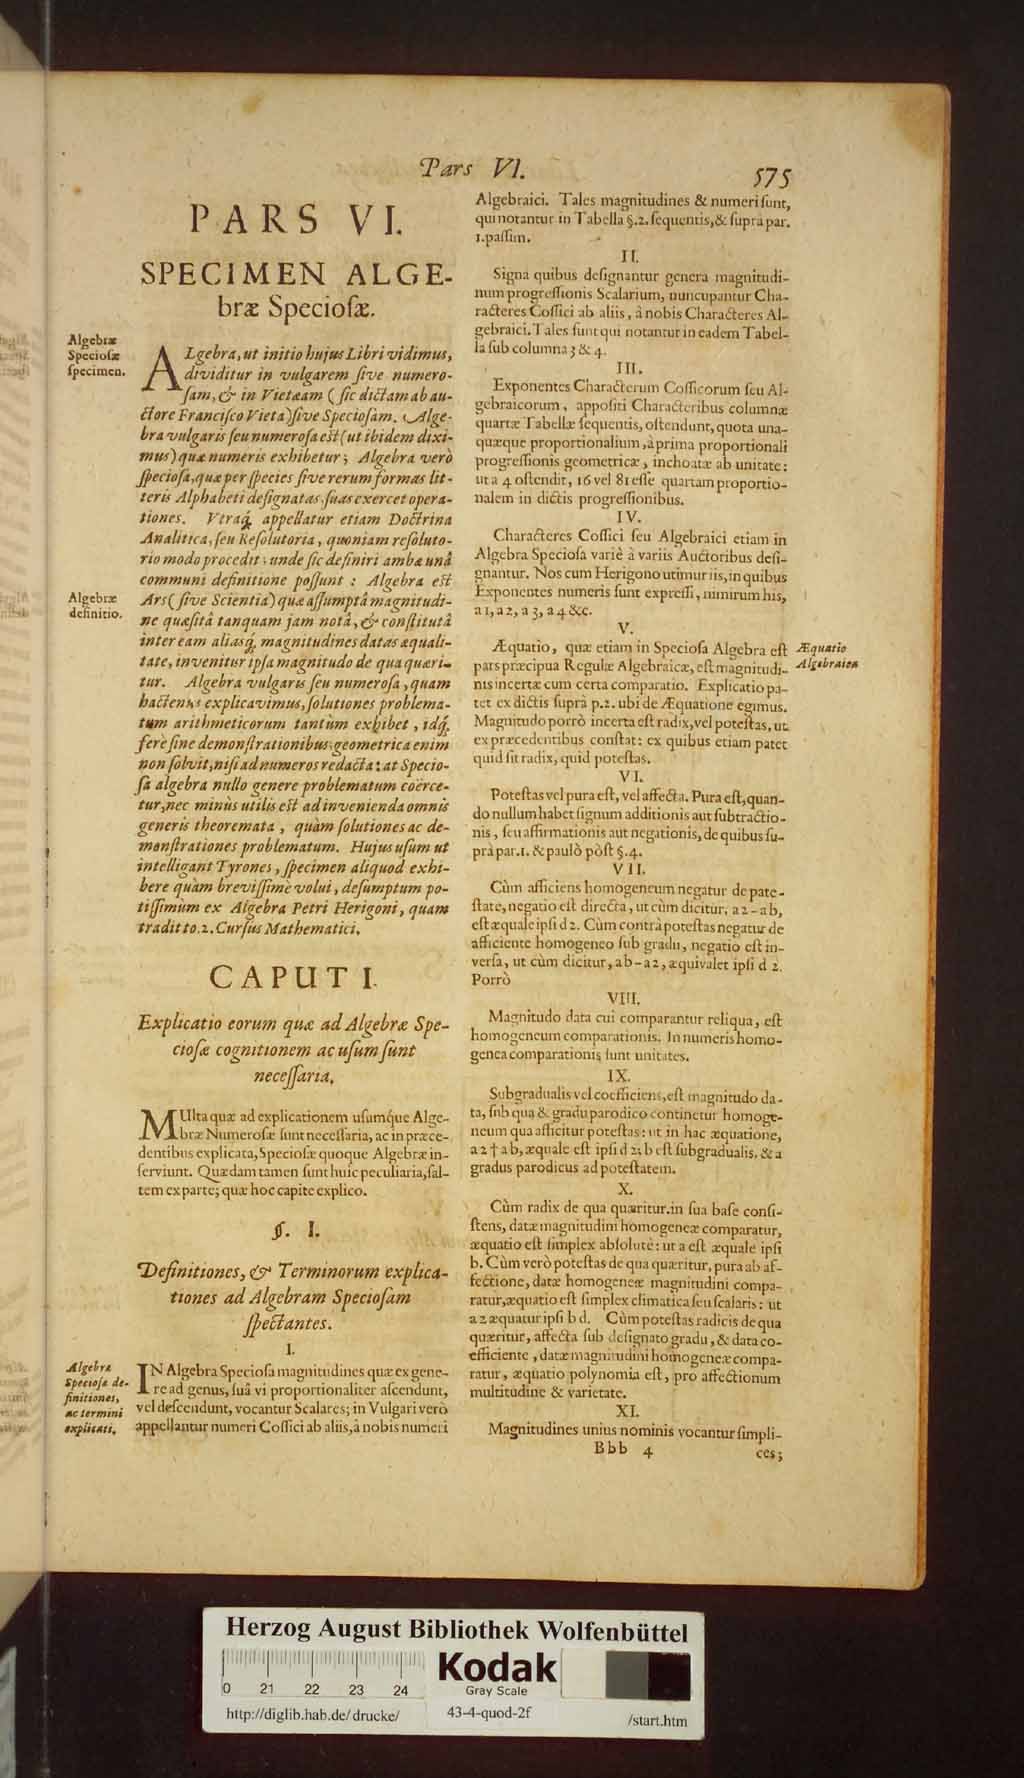 Pars VI.
575
PARS VI.
SPECIMEN ALGE-
bræ Specioſæ.
Algebræ
Specioſæ
ſpecimen.
ALgebra, ut initio hujus Libri vidimus,
dividitur in vulgarem ſive numero-
ſam, & in Vietæam (ſic dictam ab au-
ctore Franciſco Vieta) ſive Specioſam. Alge-
bra vulgaris ſeu numeroſa eſt (ut ibidem dixi-
mus) quæ numeris exhibetur; Algebra verò
ſpecioſa, quæ per ſpecies ſive rerum formas lit-
teris Alphabeti deſignatas, ſuas exercet opera-
tiones. Vtraq́, appellatur etiam Doctrina
Analitica, ſeu Reſolutoria, quoniam reſoluto-
rio modo procedit; unde ſic definiri ambæ unâ
communi definitione poſſunt: Algebra eſt
Algebræ
definitio.
Ars (ſive Scientia) quæ aſſumptâ magnitudi-
ne quæſitâ tanquam jam notâ, & conſtitutâ
inter eam aliasq́, magnitudines datas æquali-
tate, invenitur ipſa magnitudo de qua quæri-
tur. Algebra vulgaris ſeu numeroſa, quam
hactenus explicavimus, ſolutiones problema-
tum arithmeticorum tantùm exhibet, idq́,
ferè ſine demonſtrationibus; geometrica enim
non ſolvit, niſi ad numeros redacta: at Specio-
ſa algebra nullo genere problematum coërce-
tur, nec minùs utilis eſt ad invenienda omnis
generis theoremata, quàm ſolutiones ac de-
monſtrationes problematum. Hujus uſum ut
intelligant Tyrones, ſpecimen aliquod exhi-
bere quàm breviſſimè volui, deſumptum po-
tiſſimùm ex Algebra Petri Herigoni, quam
tradit to. 2. Curſus Mathematici.
CAPUT I.
Explicatio eorum quæ ad Algebræ Spe-
cioſæ cognitionem ac uſum ſunt
neceſſaria.
MUlta quæ ad explicationem uſumque Alge-
bræ Numeroſæ ſunt neceſſaria, ac in præce-
dentibus explicata, Specioſæ quoque Algebræ in-
ſerviunt. Quædam tamen ſunt huic peculiaria, ſal-
tem ex parte; quæ hoc capite explico.
§. I.
Definitiones, & Terminorum explica-
tiones ad Algebram Specioſam
ſpectantes.
I.
Algebræ
Specioſæ de-
finitiones,
ac termini
explicati.
IN Algebra Specioſa magnitudines quæ ex gene-
re ad genus, ſuâ vi proportionaliter aſcendunt,
vel deſcendunt, vocantur Scalares; in Vulgari verò
appellantur numeri Coſſici ab aliis, à nobis numeri
Algebraici. Tales magnitudines & numeri ſunt,
qui notantur in Tabella §. 2. ſequentis, & ſuprà par.
1. paſſim.
II.
Signa quibus deſignantur genera magnitudi-
num progreſſionis Scalarium, nuncupantur Cha-
racteres Coſſici ab aliis, à nobis Characteres Al-
gebraici. Tales ſunt qui notantur in eadem Tabel-
la ſub columna 3 & 4.
III.
Exponentes Characterum Coſſicorum ſeu Al-
gebraicorum, appoſiti Characteribus columnæ
quartæ Tabellæ ſequentis, oſtendunt, quota una-
quæque proportionalium, à prima proportionali
progreſſionis geometricæ, inchoatæ ab unitate:
ut a 4 oſtendit, 16 vel 81 eſſe quartam proportio-
nalem in dictis progreſſionibus.
IV.
Characteres Coſſici ſeu Algebraici etiam in
Algebra Specioſa variè à variis Auctoribus deſi-
gnantur. Nos cum Herigono utimur iis, in quibus
Exponentes numeris ſunt expreſſi, nimirum his,
a 1, a 2, a 3, a 4 &c.
V.
Æquatio, quæ etiam in Specioſa Algebra eſt
pars præcipua Regulæ Algebraicæ, eſt magnitudi-
nis incertæ cum certa comparatio. Explicatio pa-
tet ex dictis ſuprà p. 2. ubi de Æquatione egimus.
Magnitudo porrò incerta eſt radix, vel poteſtas, ut
ex præcedentibus conſtat: ex quibus etiam patet
quid ſit radix, quid poteſtas.
Æquatio
Algebraica
VI.
Poteſtas vel pura eſt, vel affecta. Pura eſt, quan-
do nullum habet ſignum additionis aut ſubtractio-
nis, ſeu affirmationis aut negationis, de quibus ſu-
prà par. 1. & paulò pòſt §. 4.
VII.
Cùm afficiens homogeneum negatur de pate-
ſtate, negatio eſt directa, ut cùm dicitur, a 2 - ab,
eſt æquale ipſi d 2. Cùm contrà poteſtas negatur de
afficiente homogeneo ſub gradu, negatio eſt in-
verſa, ut cùm dicitur, ab - a 2, æquivalet ipſi d 2.
Porrò
VIII.
Magnitudo data cui comparantur reliqua, eſt
homogeneum comparationis. In numeris homo-
genea comparationis ſunt unitates.
IX.
Subgradualis vel coefficiens, eſt magnitudo da-
ta, ſub qua & gradu parodico continetur homoge-
neum qua afficitur poteſtas: ut in hac æquatione,
a 2 † ab, æquale eſt ipſi d 2; b eſt ſubgradualis, & a
gradus parodicus ad poteſtatem.
X.
Cùm radix de qua quæritur, in ſua baſe conſi-
ſtens, datæ magnitudini homogeneæ comparatur,
æquatio eſt ſimplex abſolutè: ut a eſt æquale ipſi
b. Cùm verò poteſtas de qua quæritur, pura ab af-
fectione, datæ homogeneæ magnitudini compa-
ratur, æquatio eſt ſimplex climatica ſeu ſcalaris: ut
a 2 æquatur ipſi b d. Cùm poteſtas radicis de qua
quæritur, affecta ſub deſignato gradu, & data co-
efficiente, datæ magnitudini homogeneæ compa-
ratur, æquatio polynomia eſt, pro affectionum
multitudine & varietate.
XI.
Magnitudines unius nominis vocantur ſimpli-
Bbb 4
ces;
Herzog August Bibliothek Wolfenbüttel
0 21 22 23 24
Kodak
Gray Scale
http://diglib.hab.de/drucke/
43-4-quod-2f
/start.htm